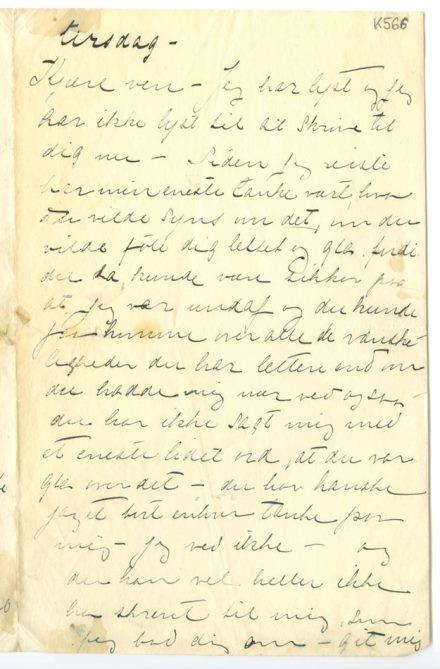 K566
tirsdag -
Kjære ven - Jeg har lyst og jeg
har ikke lyst til at skrive til
dig nu - Siden jeg reiste
har min eneste tanke vært, hva
du vilde syns om det, om du
vilde føle dig lettet og gla. fordi
du da kunde være sikker på
at jeg var undaf og du kunde
komme over alle de vanske-
ligheder du har lettere end om
du hadde mig nær ved og så
du har ikke sagt mig med
et eneste lidet ord, at du var
gla over det - du har kanske
jaget bort enhver tanke på
mig - jeg ved ikke - og
du kan vel heller ikke
ha skrevet til mig, som
jeg bad dig om - Git mig